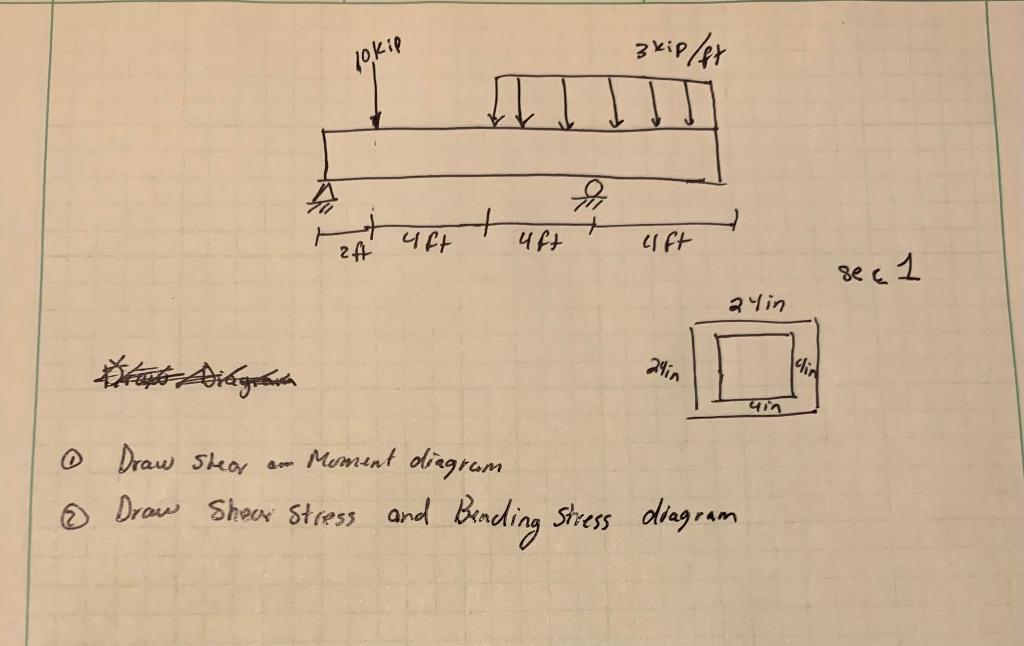 10 kip
3 kip/ft
2 ft 4 ft 4 ft 4 ft
sec 1
24 in
24 in
4 in
4 in
Draw Diagram
① Draw Shear Moment diagram
② Draw Shear Stress and Bending Stress diagram